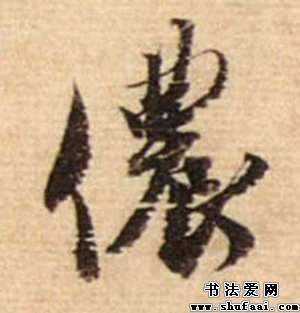 儂
书法爱网
www.shufaai.com